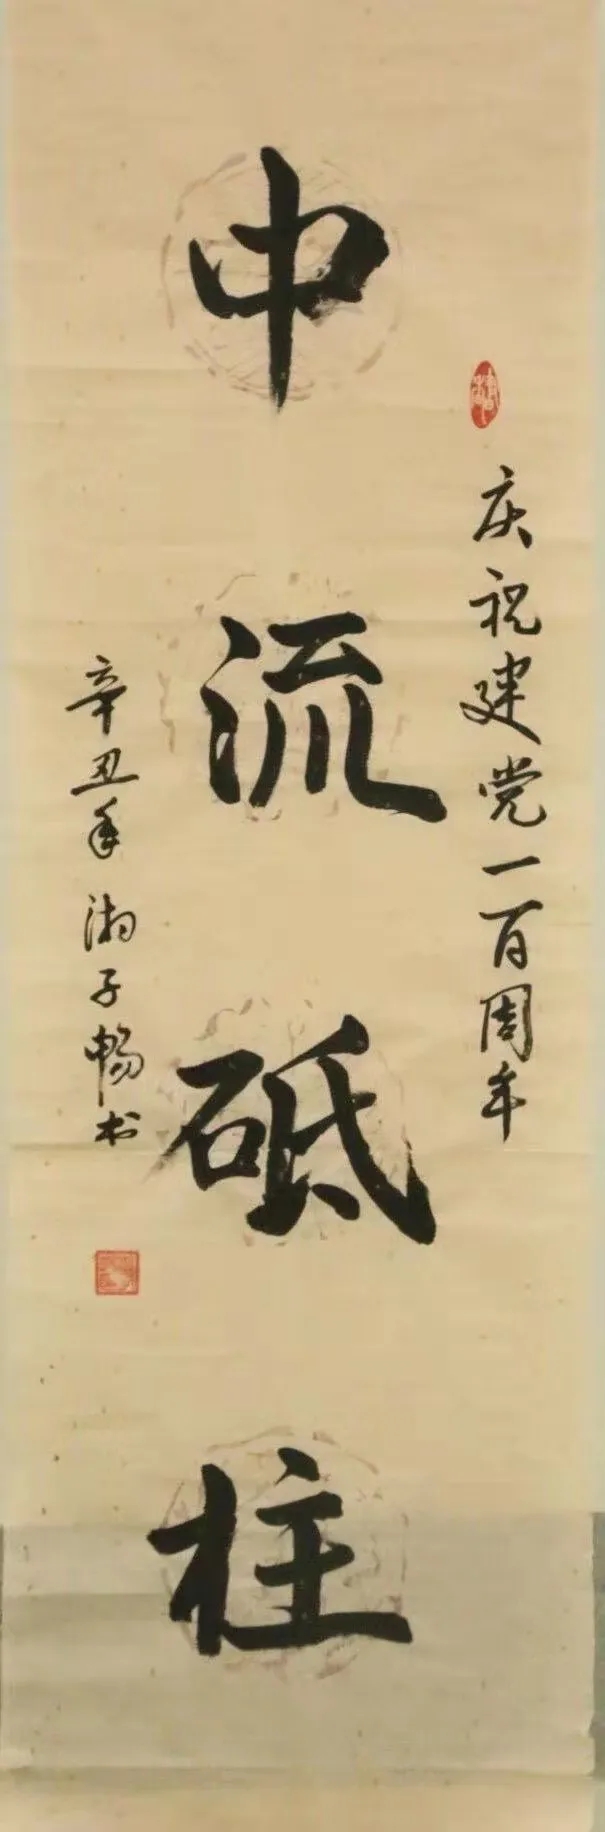 庆祝建党一百周年
中流砥柱
辛丑年湘子畅书